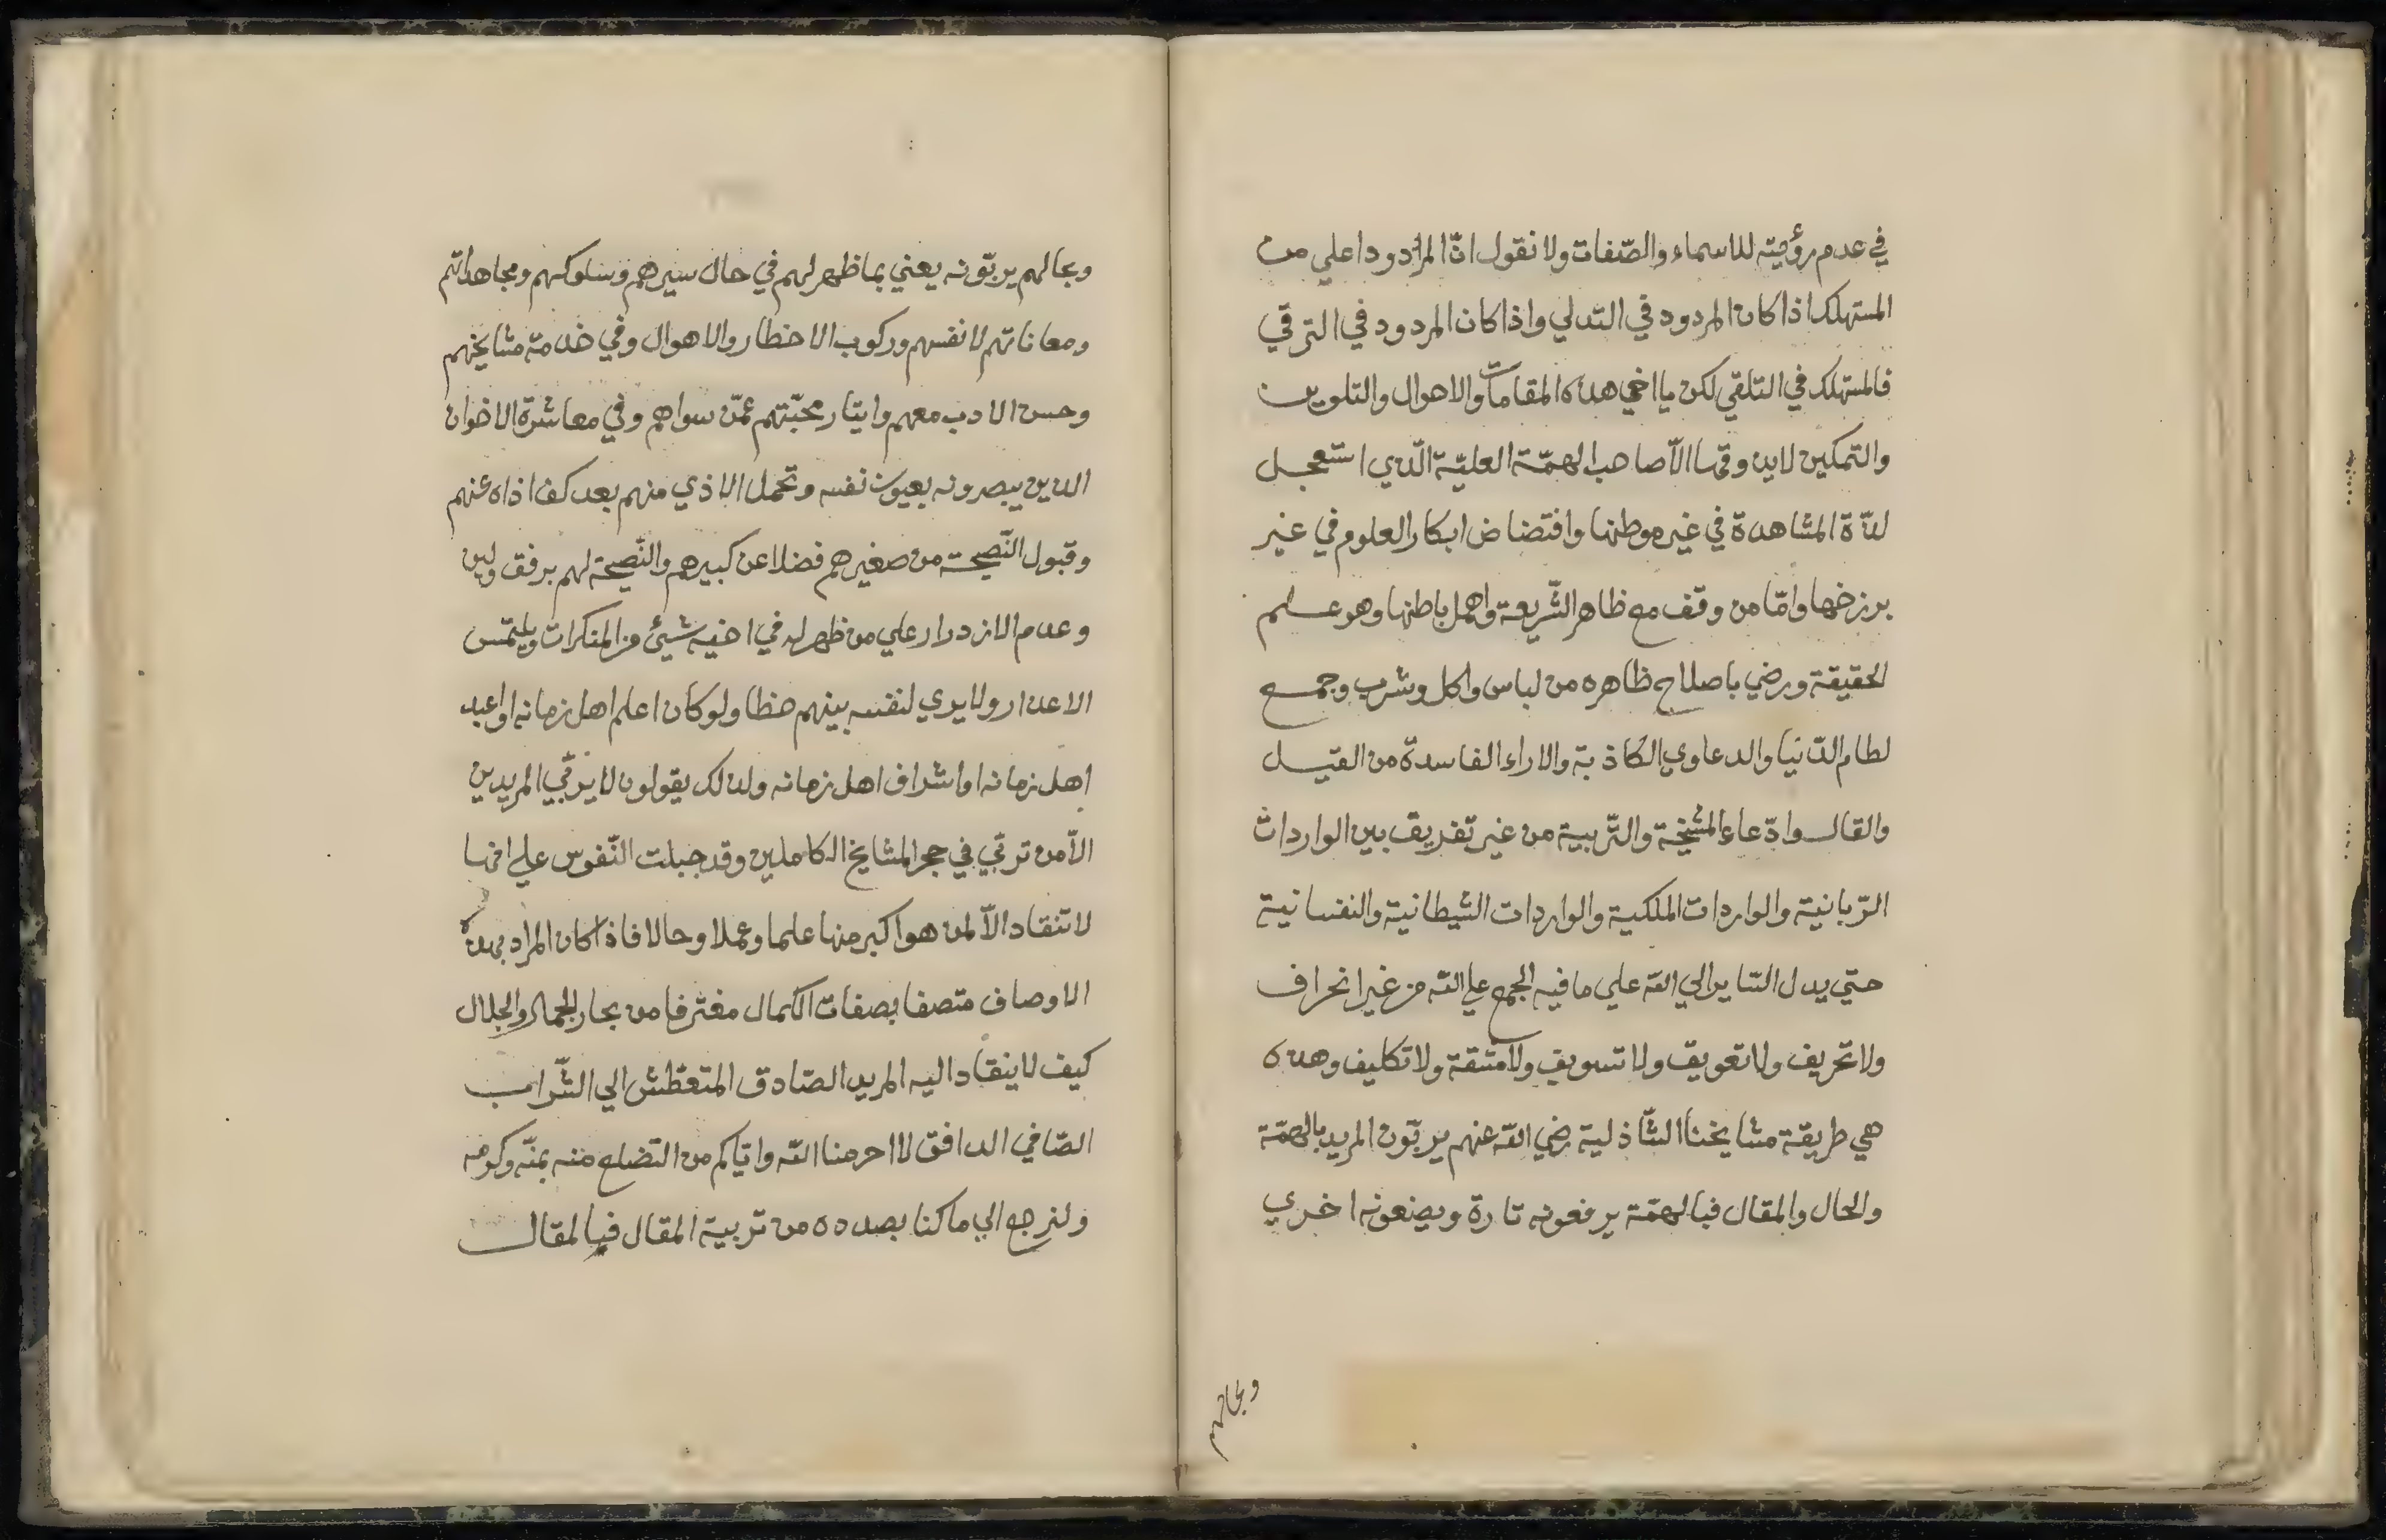 في عدم رؤيته للاسماء والصّفات ولا نقول انّ المردود اعلي من
المستهلك اذا كان المردود في التدلي واذا كان المردود في الترقي
فالمستهلك في التلقي لكن يا اخي هذه المقامات والاحوال والتلوين
والتمكين لا يذوقها الاّ صاحب الهمّة العليّة الّذي استعجل
لذّة المشاهدة في غير موطنها وافتضاض ابكار العلوم في غير
برزخها وامّا من وقف مع ظاهر الشّريعة واهمل باطنها وهو علم
الحقيقة ورضي باصلاح ظاهره من لباس واكل وشرب وجمع
لطام الدّنيا والدعاوي الكاذبة والاراء الفاسدة من القيل
والقال وادّعاء المشيخة والتّربية من غير تفريق بين الواردات
الرّبانية والواردات الملكية والواردات الشيطانية والنفسانية
حتي يدل السّاير الي الله علي ما فيه الجمع علي الله من غير انحراف
ولا تحريف ولا تعويق ولا تسويف ولا مشقة ولا تكليف وهذه
هي طريقة مشايخنا الشّاذلية رضي الله عنهم يربّون المريد بالهمّة
والحال والمقال فبالهمّة يرفعونه تارة ويضعونه اخري
وبحالهم
وبحالهم يربّونه يعني بما ظهر لهم في حال سيرهم وسلوكهم ومجاهداتهم
ومعاناتهم لانفسهم وركوب الاخطار والاهوال وفي خدمة مشايخهم
وحسن الادب معهم وايثار محبّتهم عمّن سواهم وفي معاشرة الاخوان
الذين يبصرونه بعيوب نفسه وتحمل الاذي منهم بعد كف اذاه عنهم
وقبول النّصيحة من صغيرهم فضلا عن كبيرهم والنّصيحة لهم برفق ولين
وعدم الازدرار علي من ظهر له في اخيه شيئ من المنكرات ويلتمس
الاعذار ولا يري لنفسه بينهم حظا ولو كان اعلم اهل زمانه او اعبد
اهل زمانه او اشراف اهل زمانه ولذلك يقولون لا يربّي المريدين
الاّ من تربّي في حجر المشايخ الكاملين وقد جبلت النّفوس علي انها
لا تنقاد الاّ لمن هو اكبر منها علما وعملا وحالا فاذا كان المراد بهذه
الاوصاف متصفا بصفات الكمال مغترفا من بحار الجمال والجلال
كيف لا ينقاد اليه المريد الصّادق المتعطّش الي الشّراب
الصّافي الدافق لا احرمنا الله وايّاكم من التضلع منه بمنّه وكرمه
ولنرجع الي ما كنا بصدده من تربية المقال فبالمقال